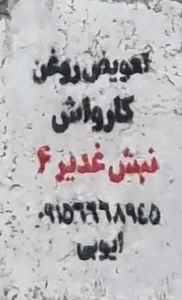 تعویض روغن
کارواش
نبش غدیر ۶
۰۹۱۵۶۶۶۸۹۴۵
ایوبی